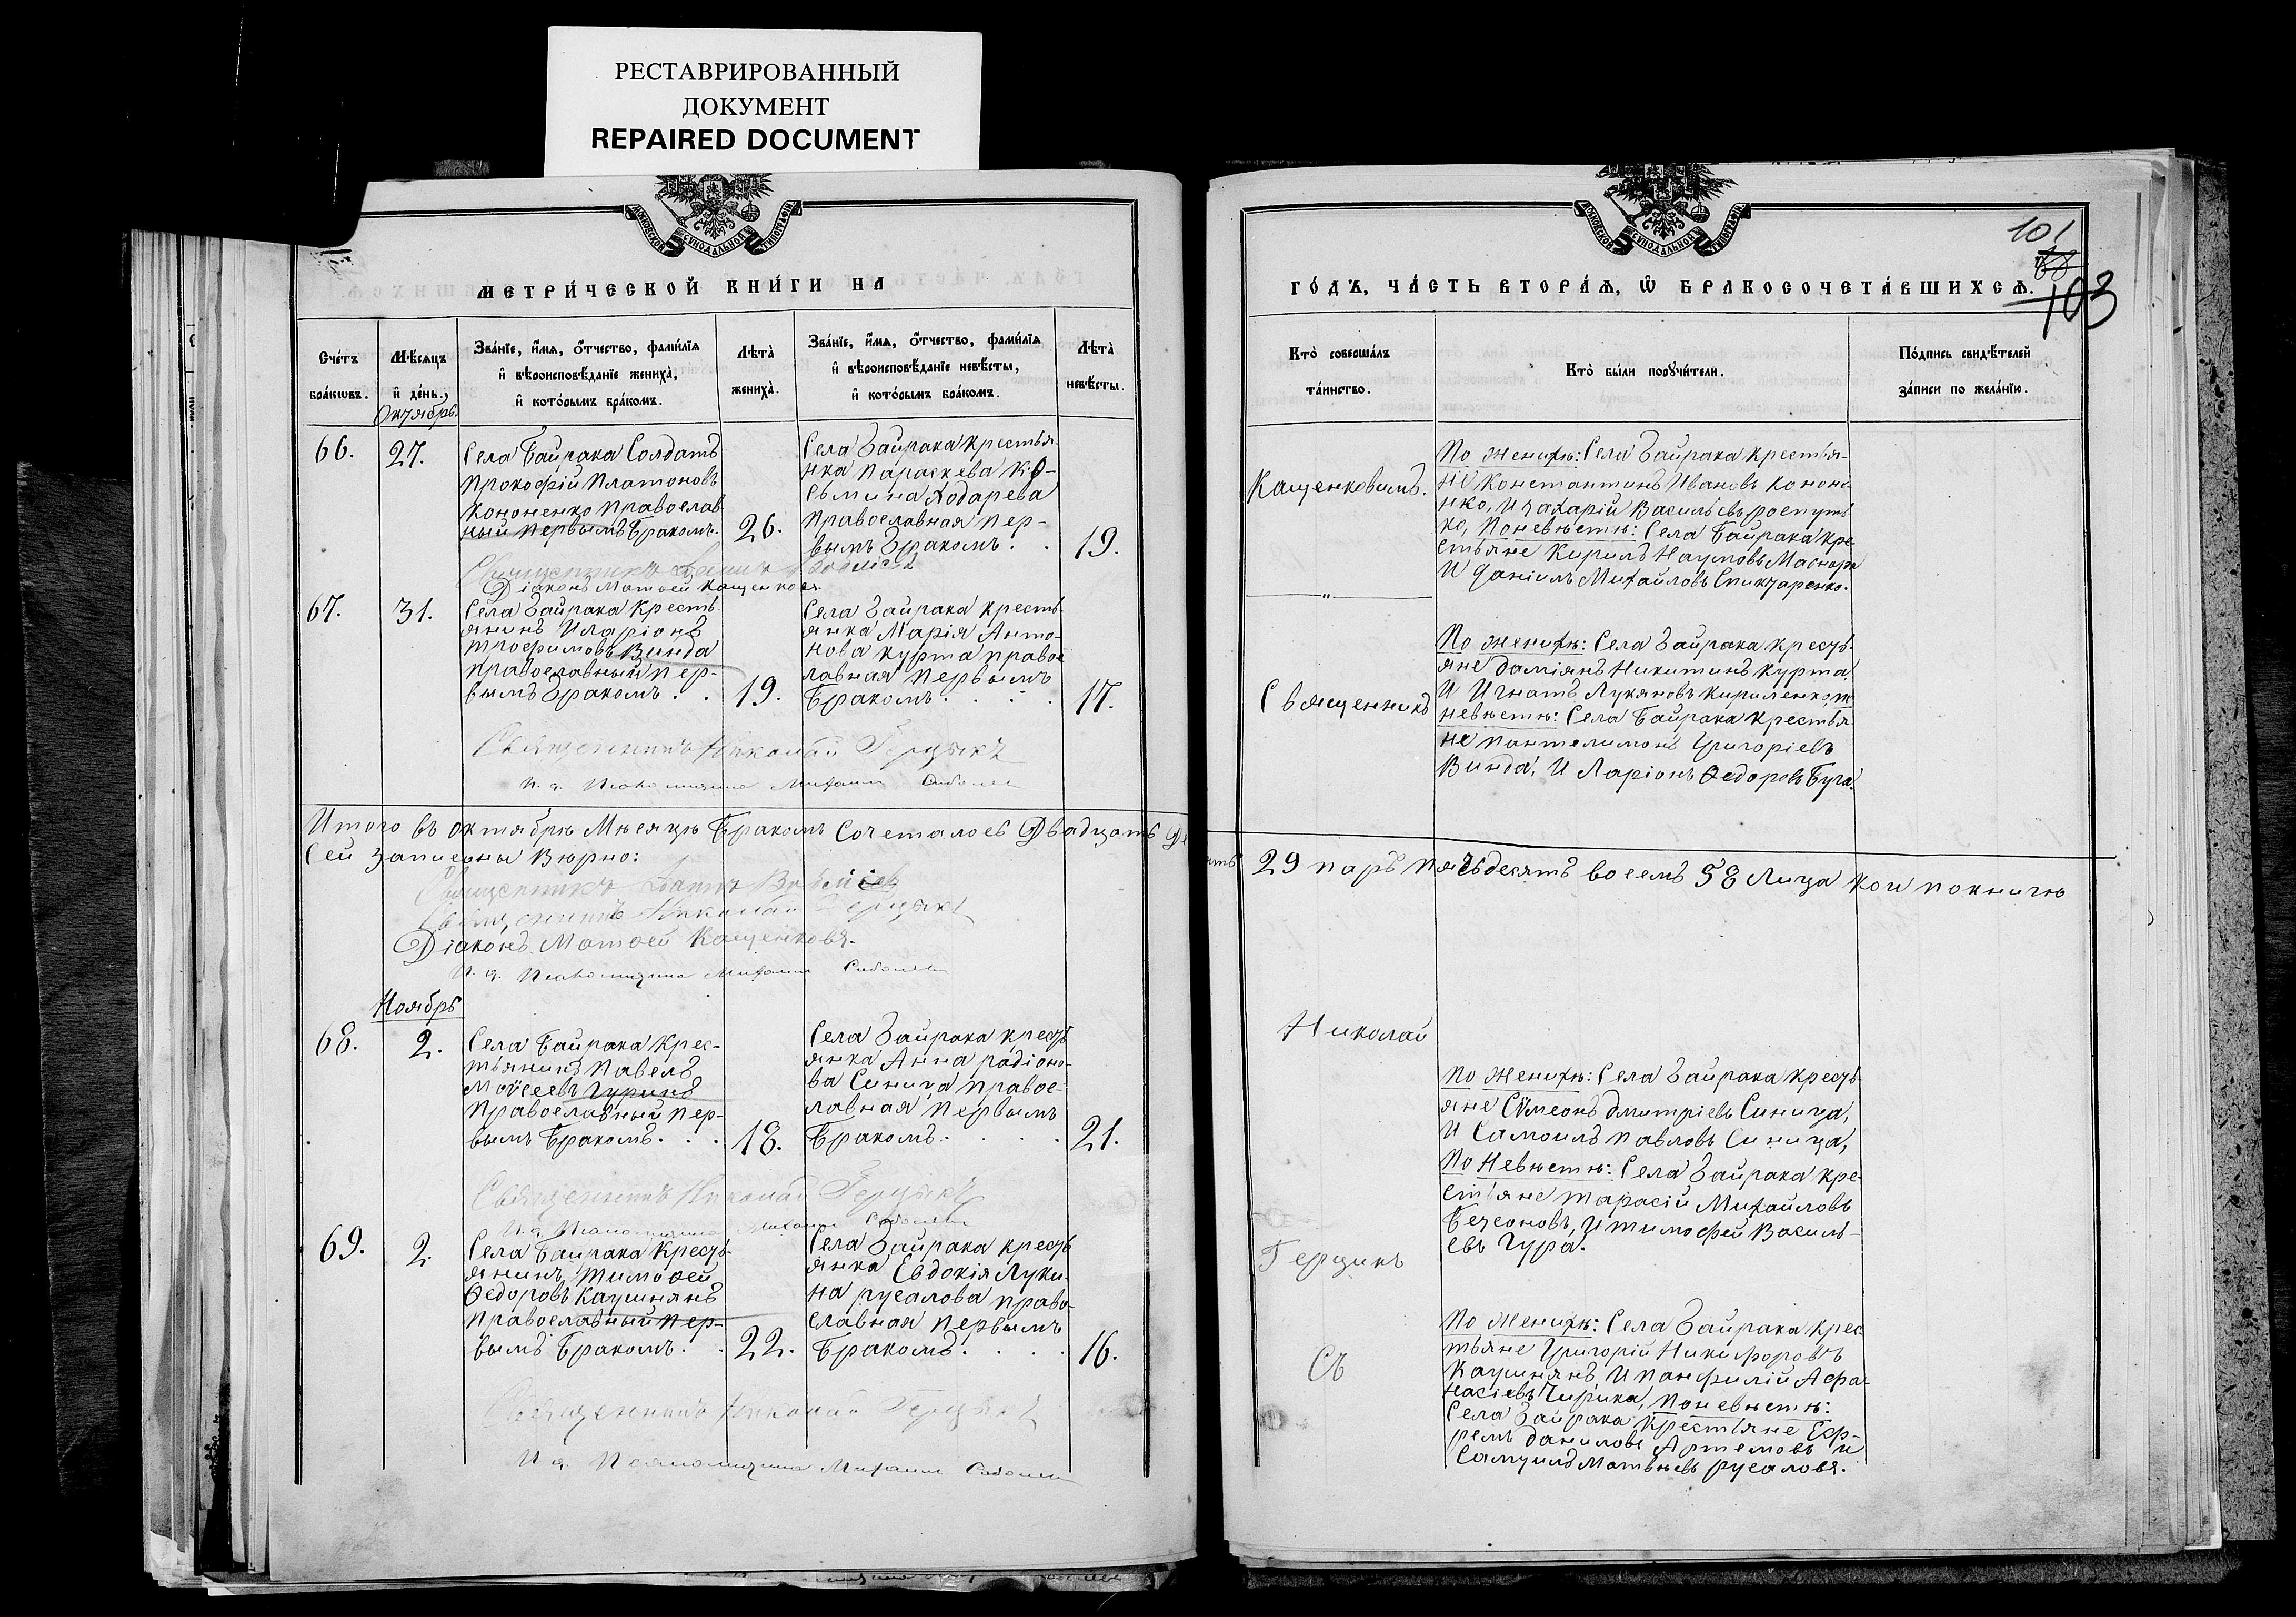 РЕСТАВРИРОВАННЫЙ
ДОКУМЕНТ
REPAIRED DOCUMENT
МОСКОВСКОЙ СѴНОДАЛЬНОЙ ТИПОГРАФІИ
МЕТРИ́ЧЕСКОЙ КНИ́ГИ НА
Сче́тъ бра́ковъ.
Мѣ́сяцъ и де́нь.
Октябрь.
Зва́нїе, и́мя, о́тчество, фами́лїя
и вѣроисповѣ́данїе жениха̀,
и кото́рымъ бра́комъ.
Лѣта̀ жениха̀.
Зва́нїе, и́мя, о́тчество, фами́лїя
и вѣроисповѣ́данїе невѣ́сты,
и кото́рымъ бра́комъ.
Лѣта̀ невѣ́сты.
66.
27.
Села Байрака Солдатъ
Прокофій Платоновъ
Кононенко православ
ный первымъ Бракомъ.
26.
Села Байрака крестья
нка Параскева Ко-
сьмина Ходарева
Православная пер-
вымъ Бракомъ.
19.
Діаконъ Матѳей Кащенковъ
67.
31.
Села Байрака Кресть
янинъ Иларіонъ
Трофимовъ Винда
православный пер-
вымъ Бракомъ.
19.
Села Байрака кресть
янка Марія Анто-
нова Курта право
лавная первымъ
Бракомъ.
17.
Священникъ Николай Герцыкъ
И. д. Псаломщика Михаилъ
Итого въ октябрѣ Мѣсяцѣ Бракомъ Сочеталось Двадцать Де
Сей записаны Вѣрно:
Священникъ Николай Герцыкъ
Діаконъ Матѳей Кащенковъ.
И. д. Псаломщика Михаилъ
Ноябрь
68.
2.
Села Байрака Крес-
тьянинъ Павелъ
Моѵсеевъ Гуринъ
Православный пер-
вымъ Бракомъ.
18.
Села Байрака крестъ
янка Анна Радіоно-
ва Синица правос-
лавная первымъ
Бракомъ.
21.
Священникъ Николай Герцыкъ
И. д. Псаломщика Михаилъ
69.
2.
Села Байрака Кресть
янинъ Тимоѳей
Ѳедоровъ Каушнянъ
православный пер-
вымъ Бракомъ.
22.
Села Байрака кресть
янка Евдокія Луки-
на Русалова право-
славная первымъ
Бракомъ.
16.
Священникъ Николай Герцыкъ
И. д. Псаломщика Михаилъ
МОСКОВСКОЙ СѴНОДАЛЬНОЙ ТИПОГРАФІИ
101
103
ГО́ДЪ, ЧА́СТЬ ВТОРА́Я, Ѡ БРАКОСОЧЕТА́ВШИХСЯ.
Кто̀ соверша́лъ
та́инство.
Кто̀ бы́ли поручи́тели.
По́дпись свидѣ́телей
за́писи по жела́нїю.
Кащенковымъ.
По женихѣ: Села Байрака крестья-
не Константинъ Ивановъ Конон
нко, И Захарій Васильевъ Роспуть
ко, По невѣстѣ: Села Байрака кре
стьяне Кирилъ Наумовъ
И Даніилъ Михайловъ
Священникъ
По женихѣ: Села Байрака кресть
яне Даміянъ Никитинъ Курта
И Игнатъ Лукяновъ Кириленко, по
невѣстѣ: Села Байрака крестья
не Пантелимонъ Григоріевъ
Винда, И Ларіонъ Ѳедоровъ Буга.
ять 29 паръ пятьдесятъ восемь 58 Лица кои покнигѣ
Николай
По женихѣ: Села Байрака кресть
яне Сѵмеонъ Дмитріевъ Синица,
И Самоилъ Павловъ Синица,
По Невѣстѣ: Села Байрака кре-
стьяне Тарасій Михайловъ
Безсоновъ, И Тимофей Василь-
евъ Гура.
Герцикъ
Съ
По женихѣ: Села Байрака крес
тьяне Григорій Никифоровъ
Каушнянъ, И Панфилій Афа-
насіевъ Чирика, По невѣстѣ:
Села Байрака Крестьяне Еф-
ремъ Даниловъ Артемовъ и
Самуилъ Матвѣевъ Русаловъ.